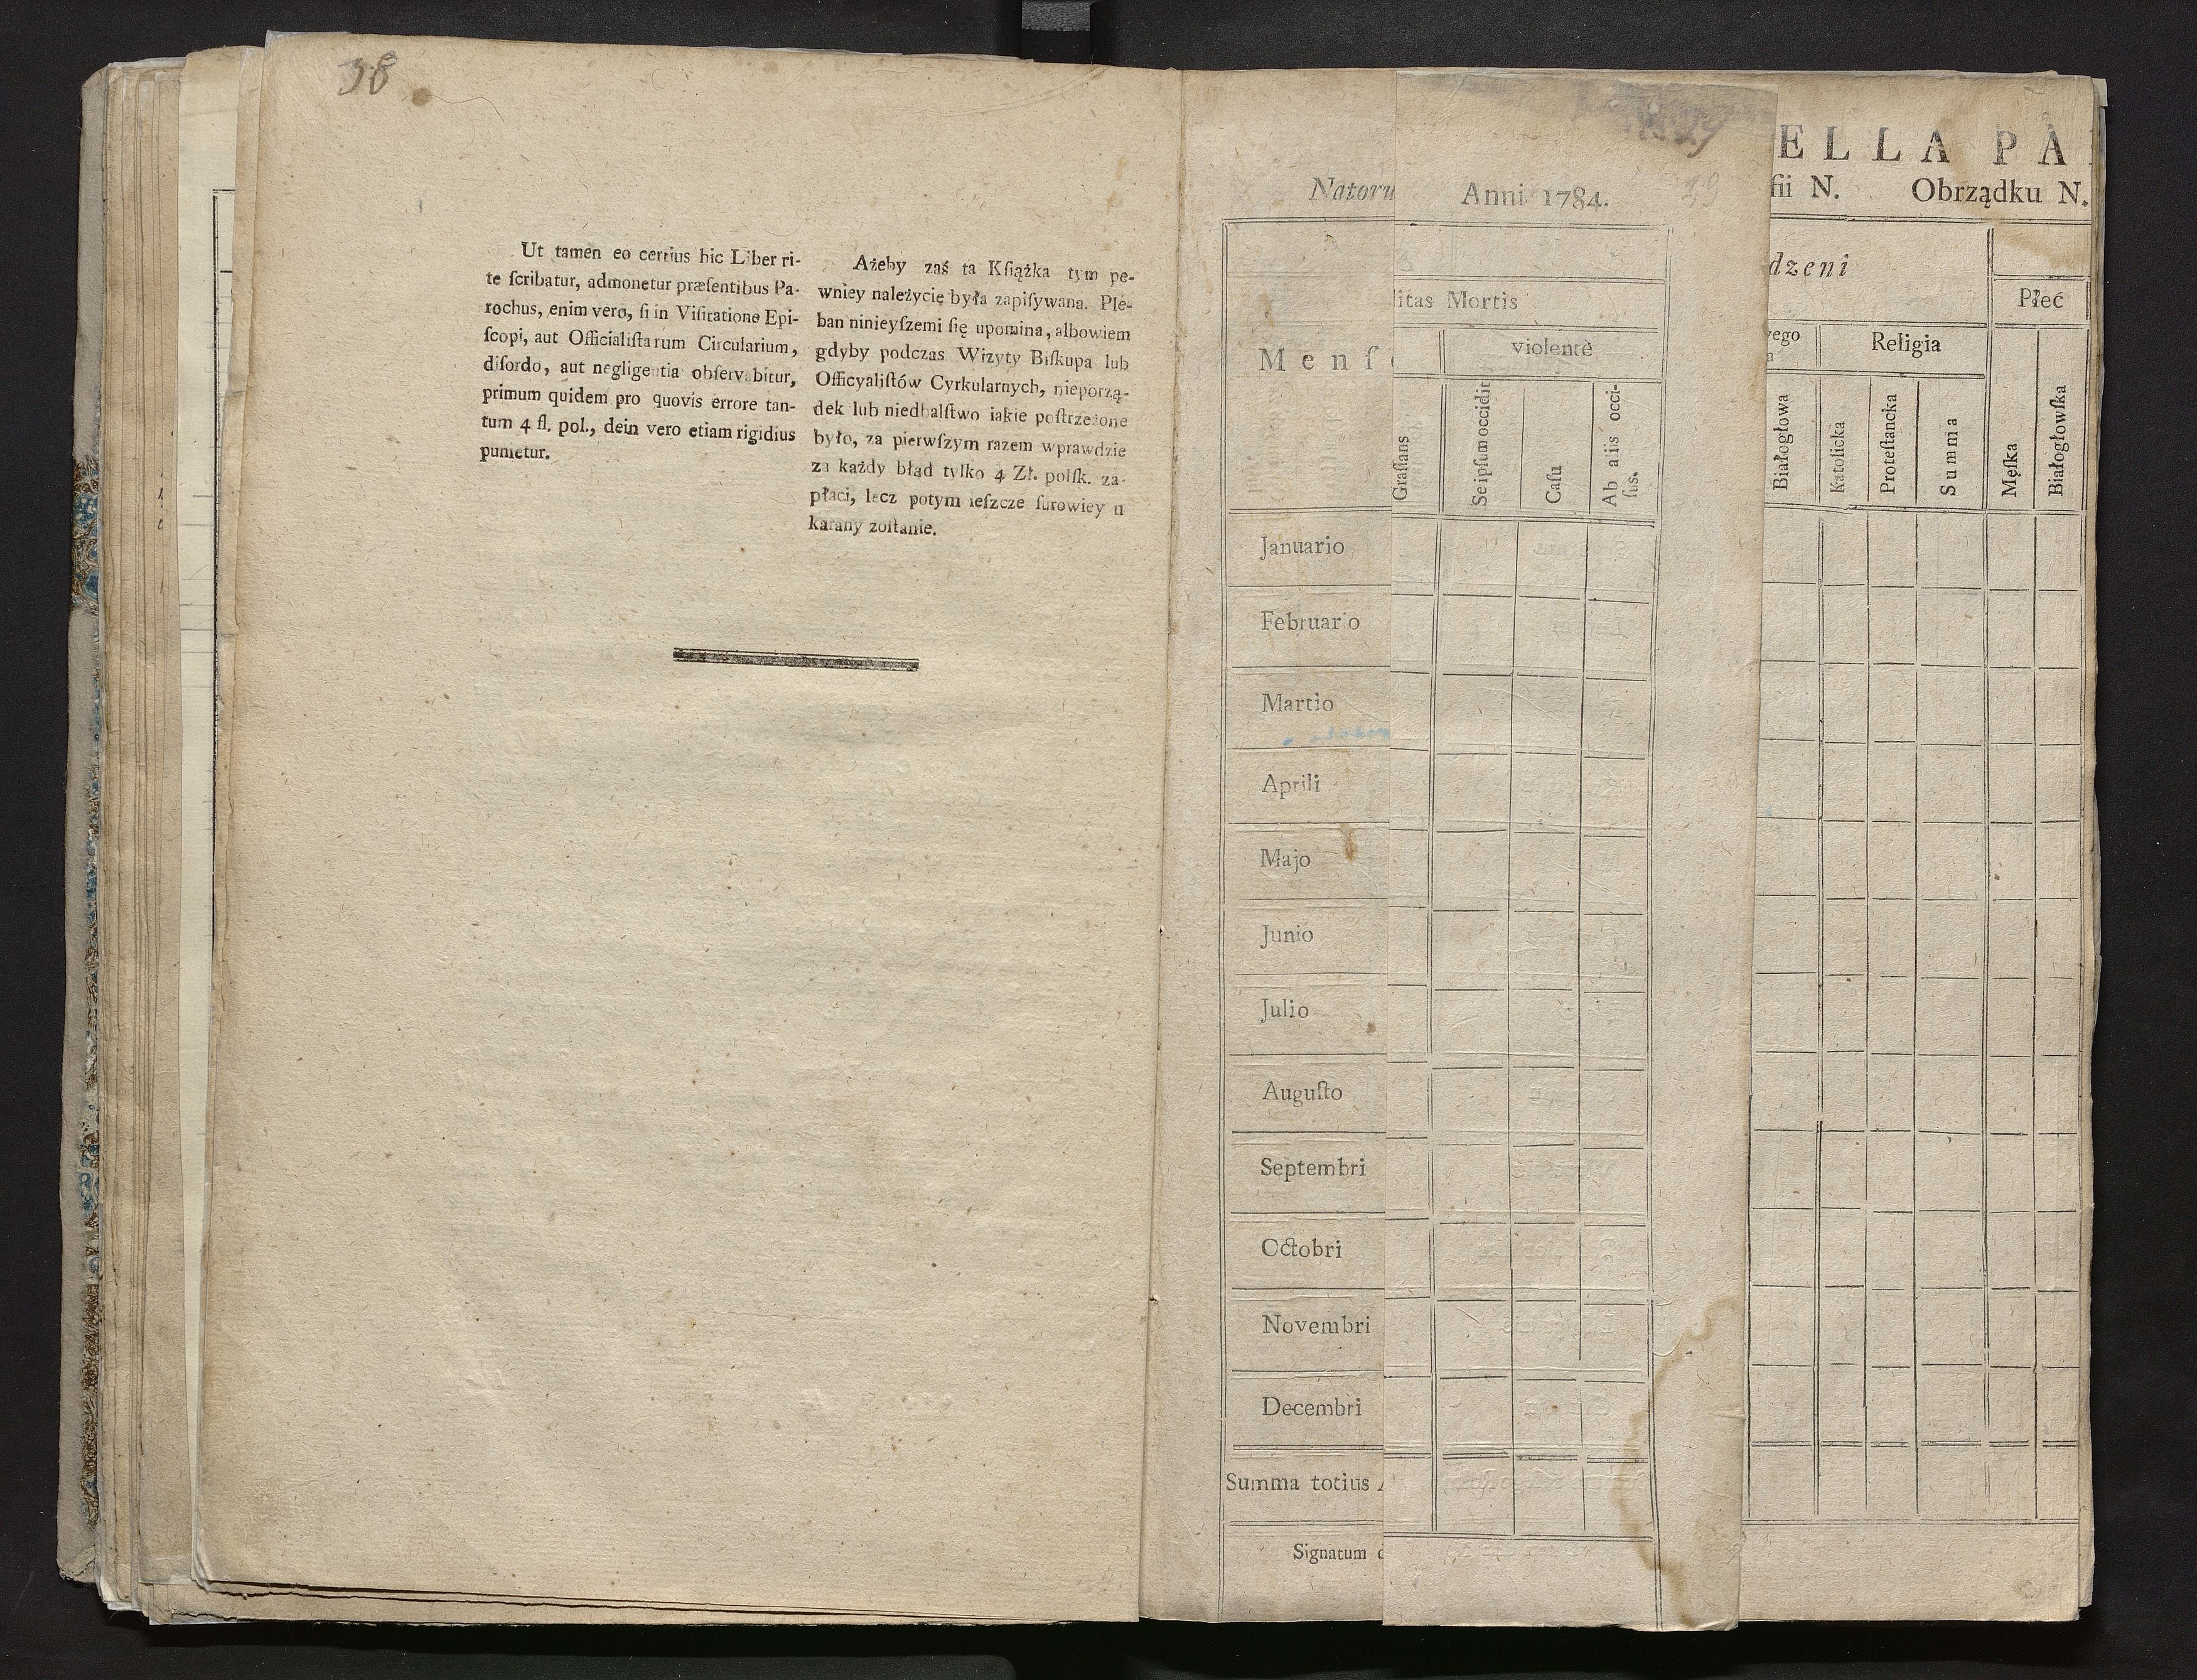 38
Ut tamen eo certius hic Liber ri-
te ſcribatur, admonetur præſentibus Pa-
rochus, enim vero, ſi in Viſitatione Epi-
ſcopi, aut Officialiſtarum Circularium,
diſordo, aut negligentia obſervabitur,
primum quidem pro quovis errore tan-
tum 4 fl. pol., dein vero etiam rigidius
punietur.
Ażeby zaś ta Kſiążka tym pe-
wniey należycię była zapiſywana. Ple-
ban ninieyſzemi ſię upomina, albowiem
gdyby podczas Wizyty Biſkupa lub
Officyaliſtów Cyrkularnych, nieporzą-
dek lub niedbalſtwo iakie poſtrzeżone
było, za pierwſzym razem wprawdzie
za każdy błąd tylko 4 Zł. polſk. za-
płaci, lecz potym ieſzcze ſurowiey u
karany zoſtanie.
Natoru
Menſ
Januario
Februario
Martio
Aprili
Majo
Junio
Julio
Auguſto
Septembri
Octobri
Novembri
Decembri
Summa totius
Signatum
Anni 1784.
39
litas Mortis
violentè
Graſſans
Seipſum occidit
Caſu
Ab aliis occi-
ſus.
ELLA PA
fii N. Obrządku N.
dzeni
Płeć
wego
Religia
Białogłowa
Katolicka
Proteſtancka
Summa
Męſka
Białogłowſka